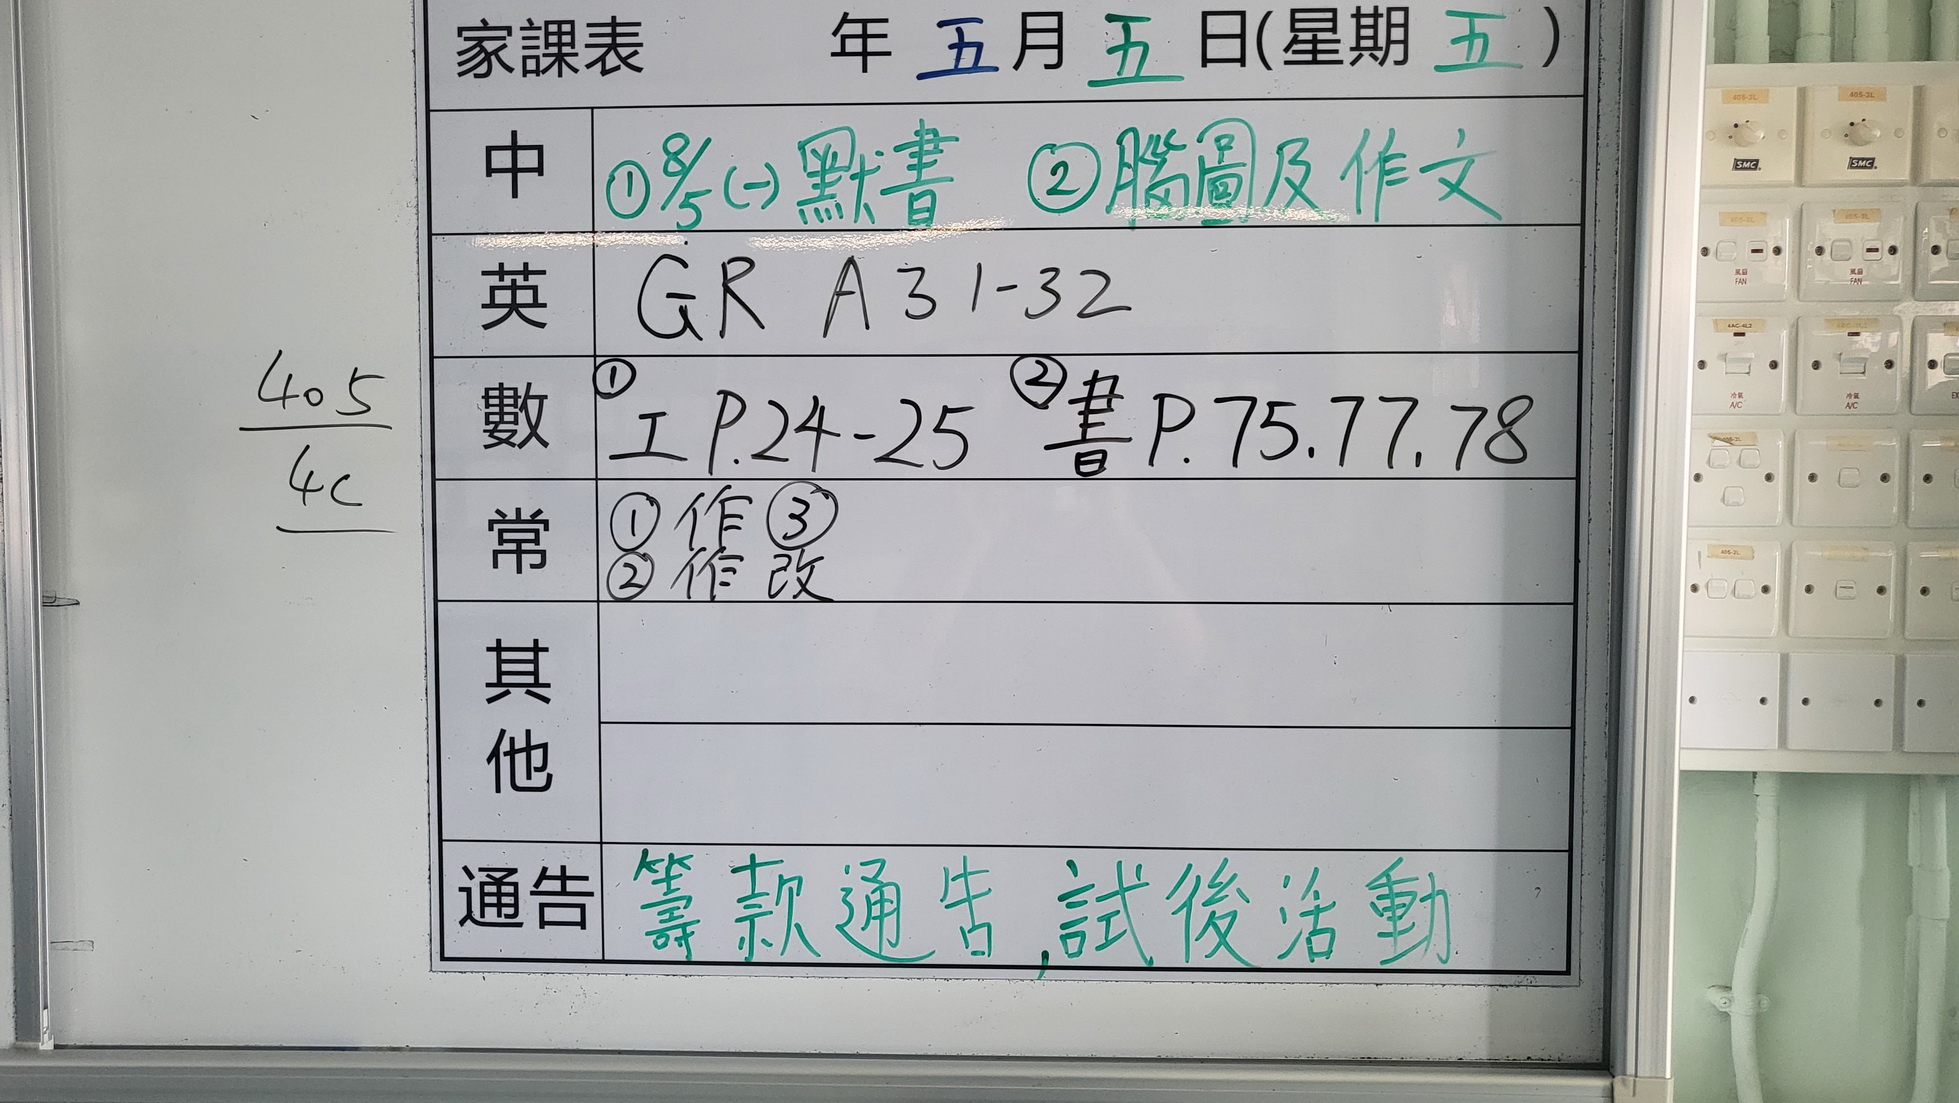 家課表 年 五 月 五 日(星期 五 )
中 ①8/5(一)默書 ②腦圖及作文
英 GR A31-32
數 ①工 P.24-25 ②書 P.75.77.78
常 ①作③
②作改
其他
通告 籌款通告,試後活動
405
4C
405-3L
405-3L
SMC
SMC
風扇
FAN
風扇
FAN
4AC-4L2
冷氣
A/C
冷氣
A/C
405-2L